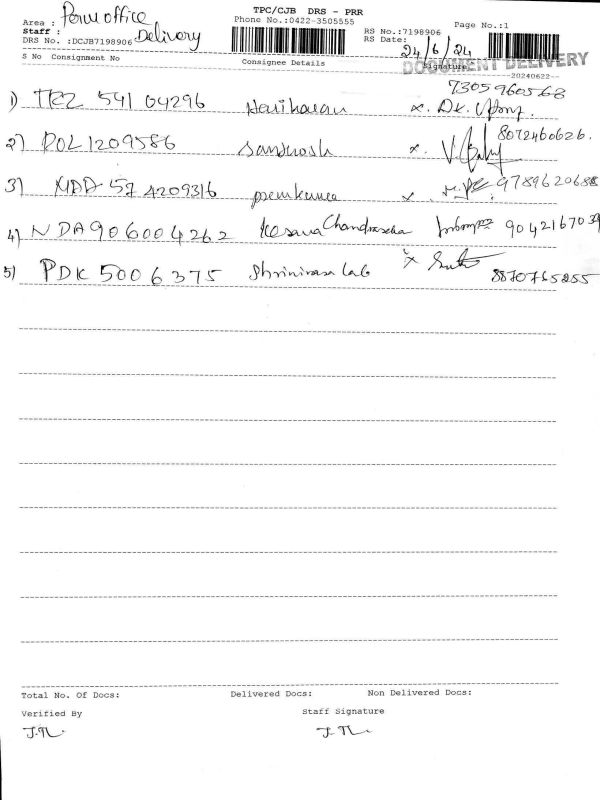 TPC/CJB DRS - PRR
Area : Perur office
Phone No.:0422-3505555
RS No.:7198906
Page No.:1
Staff : Delivery
RS Date: 24/6/24
DRS No. :DCJB7198906
DOCUMENT DELIVERY
S No Consignment No
Consignee Details
Signature
20240622--
1) TRZ 541 04296 Hariharan x. 7305960568
2) POL 1209586 Santhosh x. 8072460626.
3) MDD 57 4209316 premkumar x. 9789620688
4) NDA906004262 Kesava Chandrasekar 9042167039
5) PDK 5006375 Shrinivasa Lab x 8870765255
Total No. Of Docs:
Delivered Docs:
Non Delivered Docs:
Verified By
Staff Signature